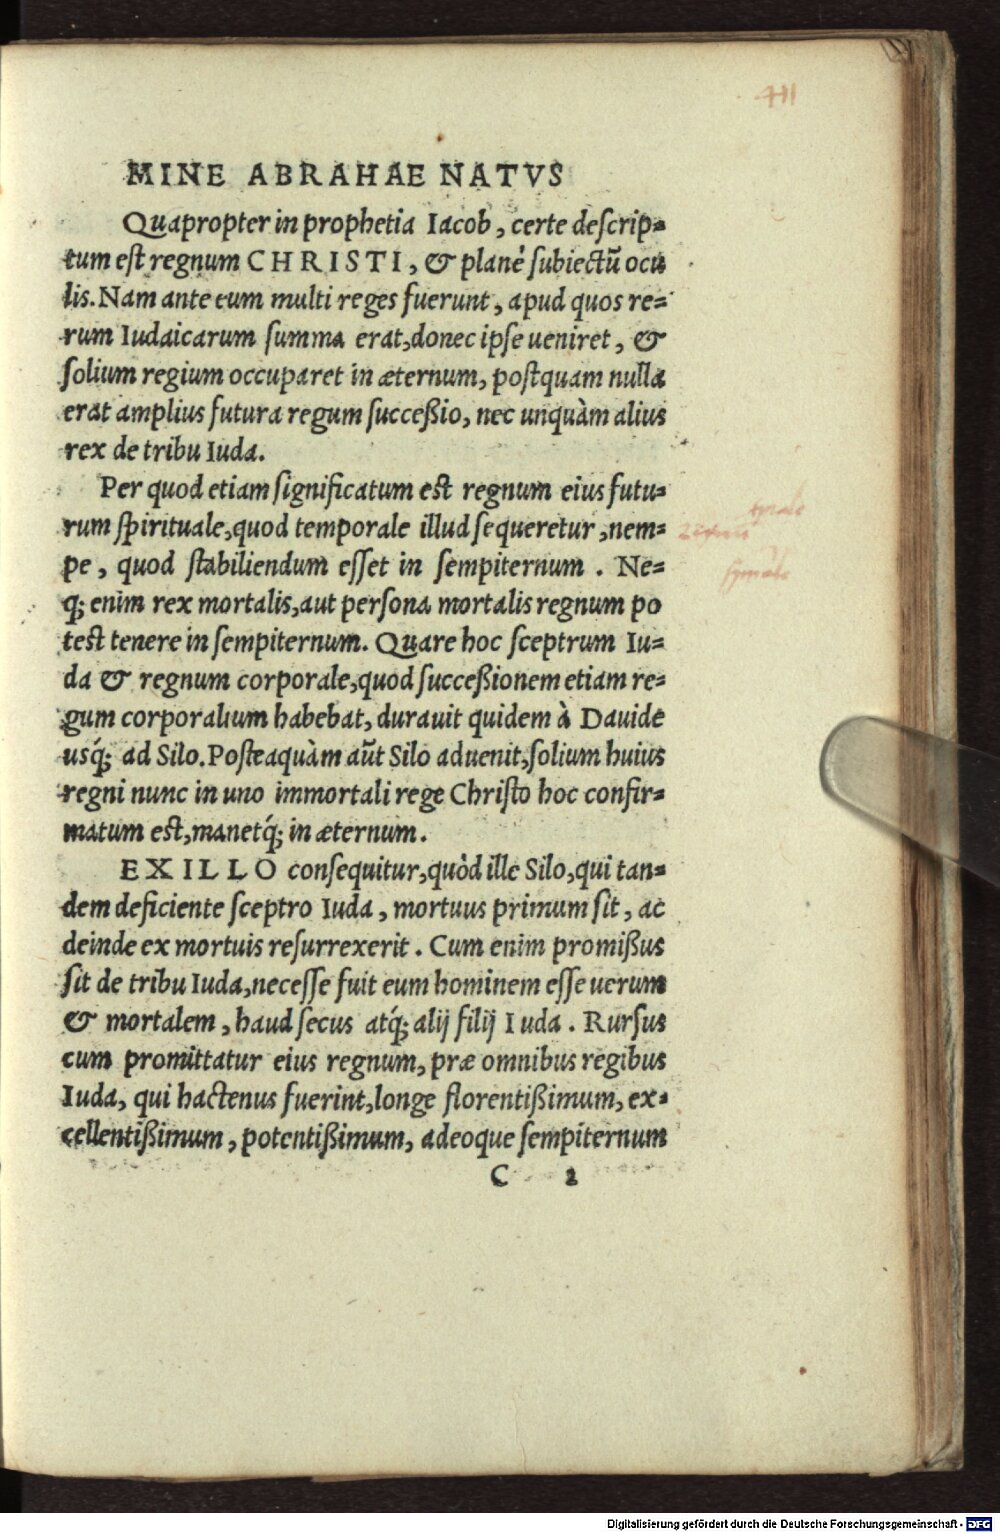 MINE ABRAHAE NATVS
Quapropter in prophetia Iacob, certe descrip=
tum est regnum CHRISTI, & planè subiectũ ocu
lis. Nam ante eum multi reges fuerunt, apud quos re=
rum Iudaicarum summa erat, donec ipse ueniret, &
solium regium occuparet in æternum, postquam nulla
erat amplius futura regum succeßio, nec unquàm alius
rex de tribu Iuda.
Per quod etiam significatum est regnum eius futu=
rum spirituale, quod temporale illud sequeretur, nem=
pe, quod stabiliendum esset in sempiternum. Ne=
q; enim rex mortalis, aut persona mortalis regnum po
test tenere in sempiternum. Quare hoc sceptrum Iu=
da & regnum corporale, quod succeßionem etiam re=
gum corporalium habebat, durauit quidem à Dauide
usq́; ad Silo. Posteaquàm aũt Silo aduenit, solium huius
regni nunc in uno immortali rege Christo hoc confir=
matum est, manetq́; in æternum.
EX ILLO consequitur, quòd ille Silo, qui tan=
dem deficiente sceptro Iuda, mortuus primum sit, ac
deinde ex mortuis resurrexerit. Cum enim promißus
sit de tribu Iuda, necesse fuit eum hominem esse uerum
& mortalem, haud secus atq́; alij filij Iuda. Rursus
cum promittatur eius regnum, præ omnibus regibus
Iuda, qui hactenus fuerint, longe florentißimum, ex=
cellentißimum, potentißimum, adeoque sempiternum
C 2
Digitalisierung gefördert durch die Deutsche Forschungsgemeinschaft - DFG